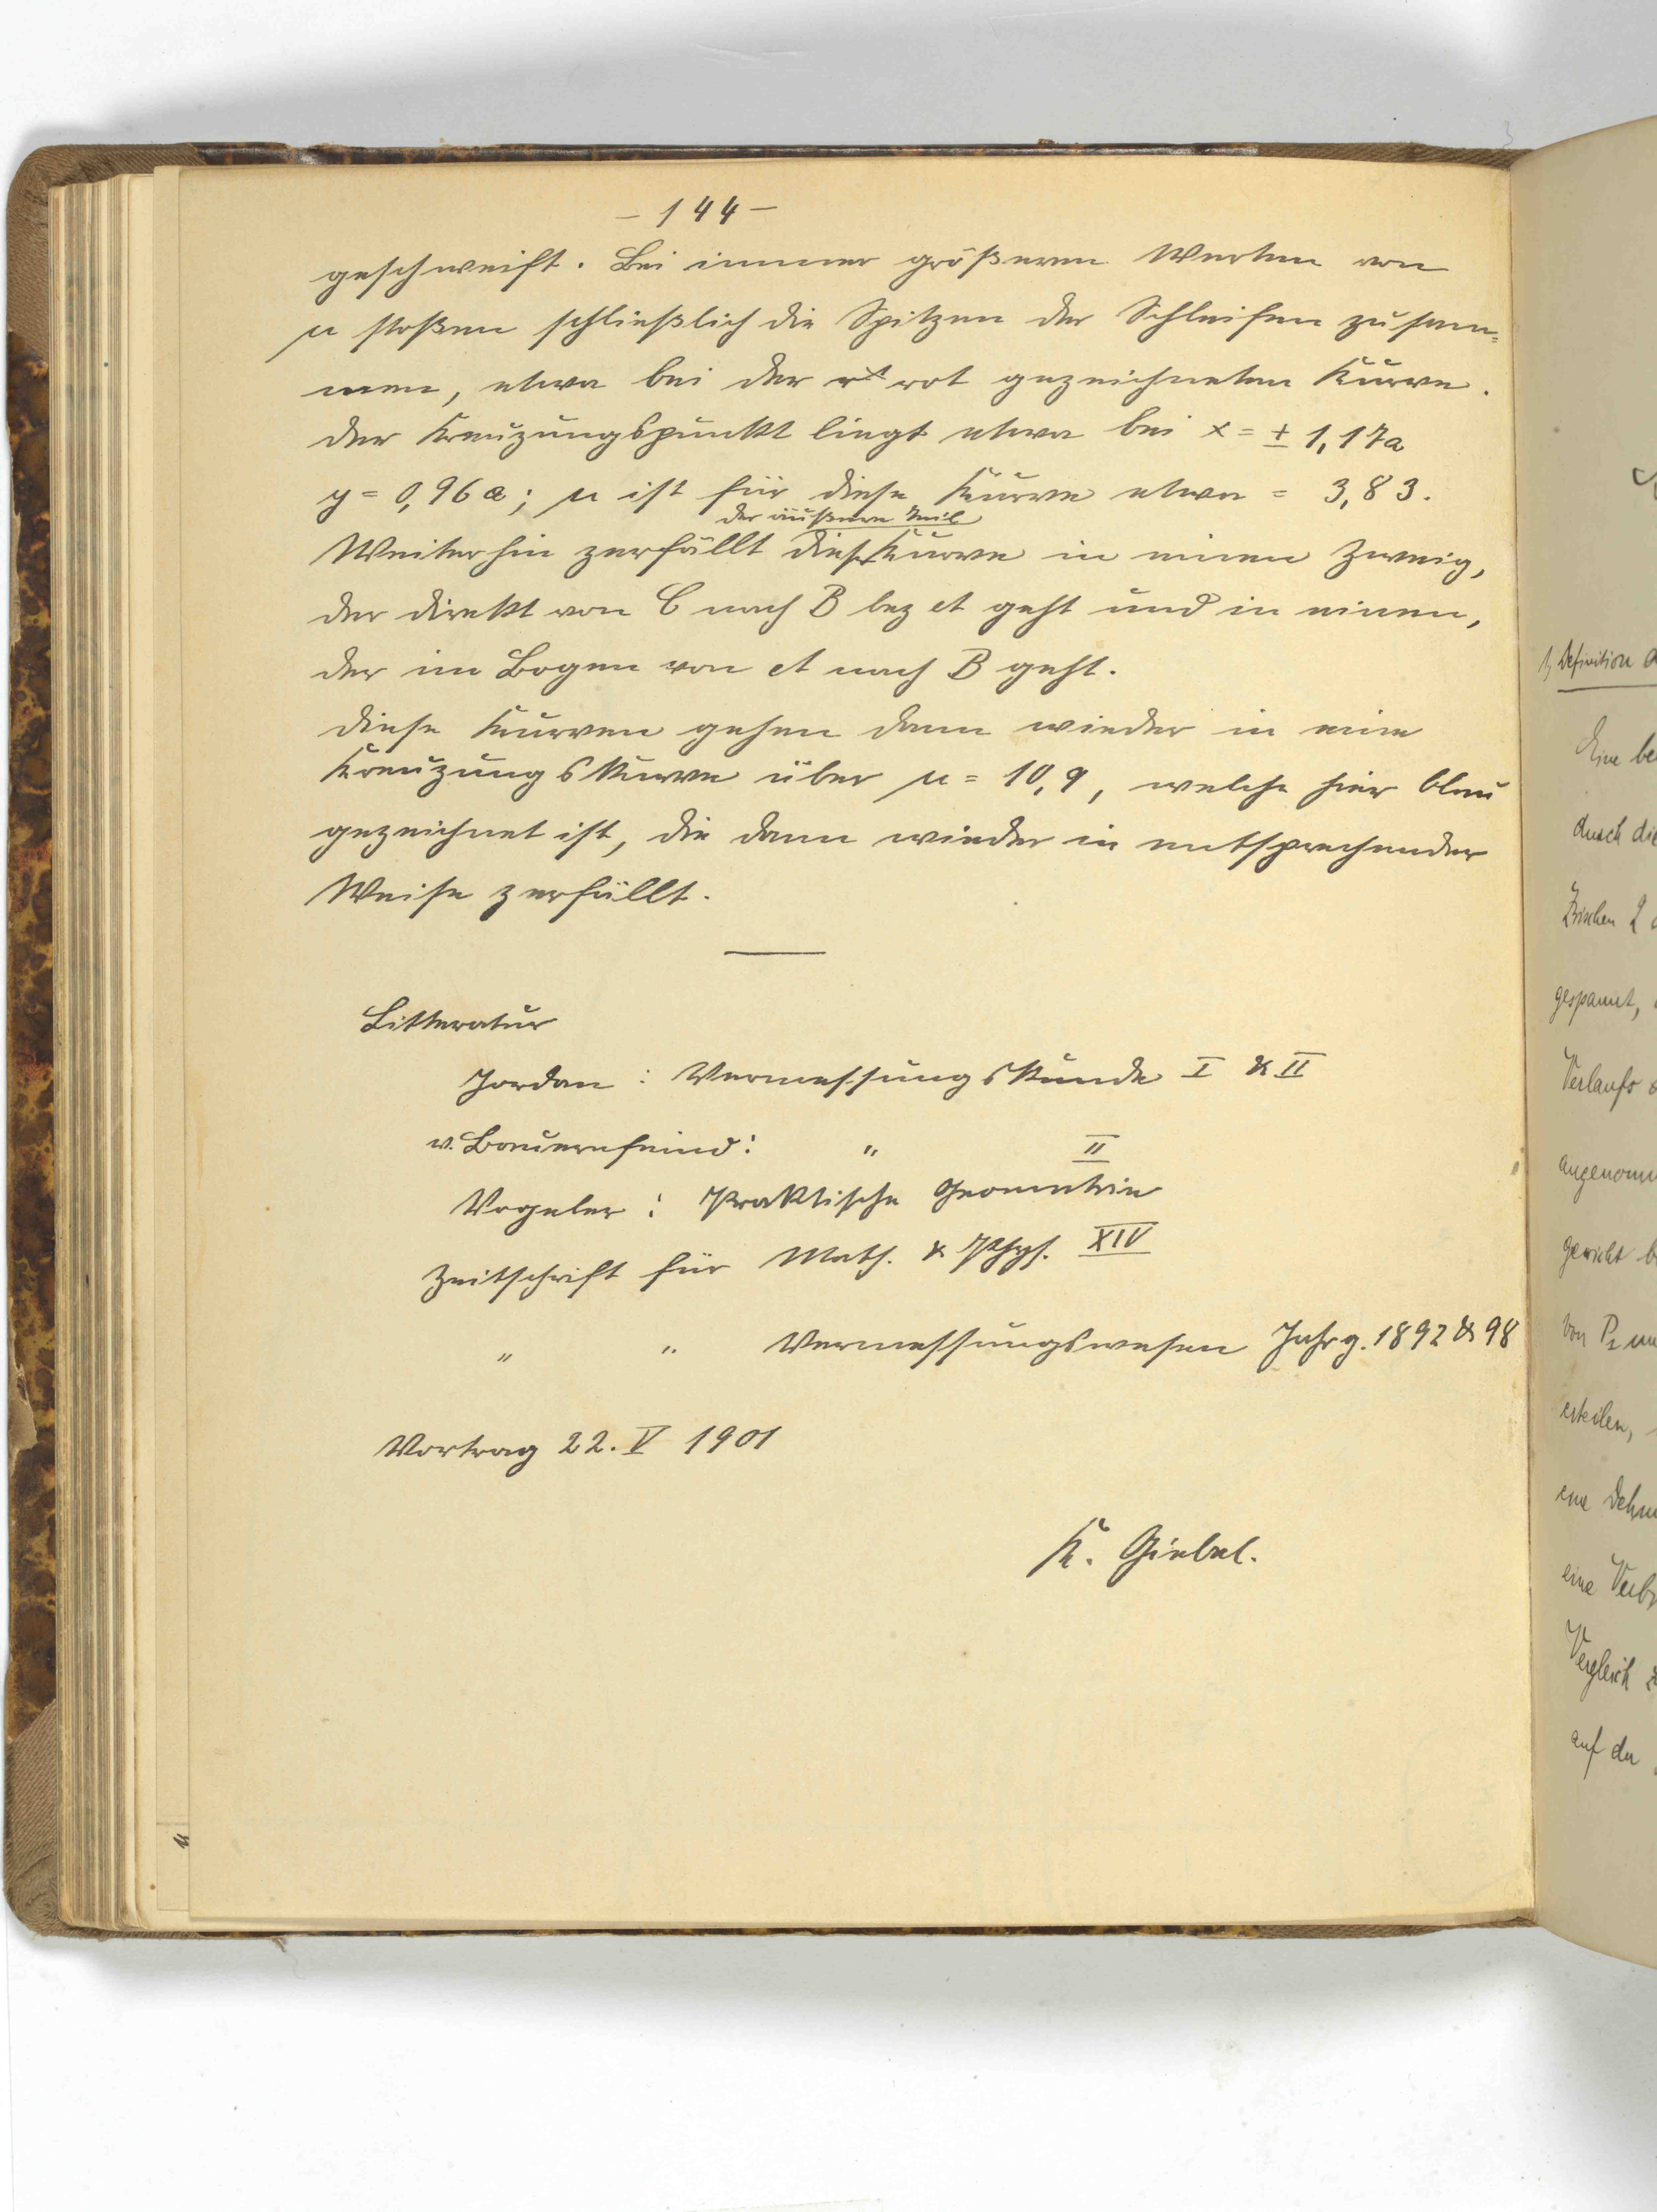 - 144 -
geschweift. Bei immer größeren Werten von
μ stoßen schließlich die Spitzen der Schleifen zusam=
men, etwa bei der rot gezeichneten Kurve.
Der Kreuzungspunkt liegt etwa bei x = ± 1,17a
y = 0,96a; μ ist für diese Kurve etwa = 3,83.
der äußere Teil
Weiterhin zerfällt dieser Kurve in einen Zweig,
der direkt von C nach B bez A geht und in einen,
der im Bogen von A nach B geht.
Diese Kurven gehen dann wieder in eine
Kreuzungskurve über μ = 10,9, welche hier blau
gezeichnet ist, die dann wieder in entsprechender
Weise zerfällt.
Litteratur
Jordan : Vermessungskunde I & II
v. Bauernfeind: " II
Vogeler : Praktische Geometrie
Zeitschrift für Math. & Phys. XIV
" " Vermessungswesen Jahrg. 1892 & 98
Vortrag 22. V 1901
K. Giebel.
1, Definition
Eine
durch die
Zwischen 2
gespannt,
Verlaufs
angenomm
gewicht
von P₂
erteilen,
eine
eine
Vergleich
auf der